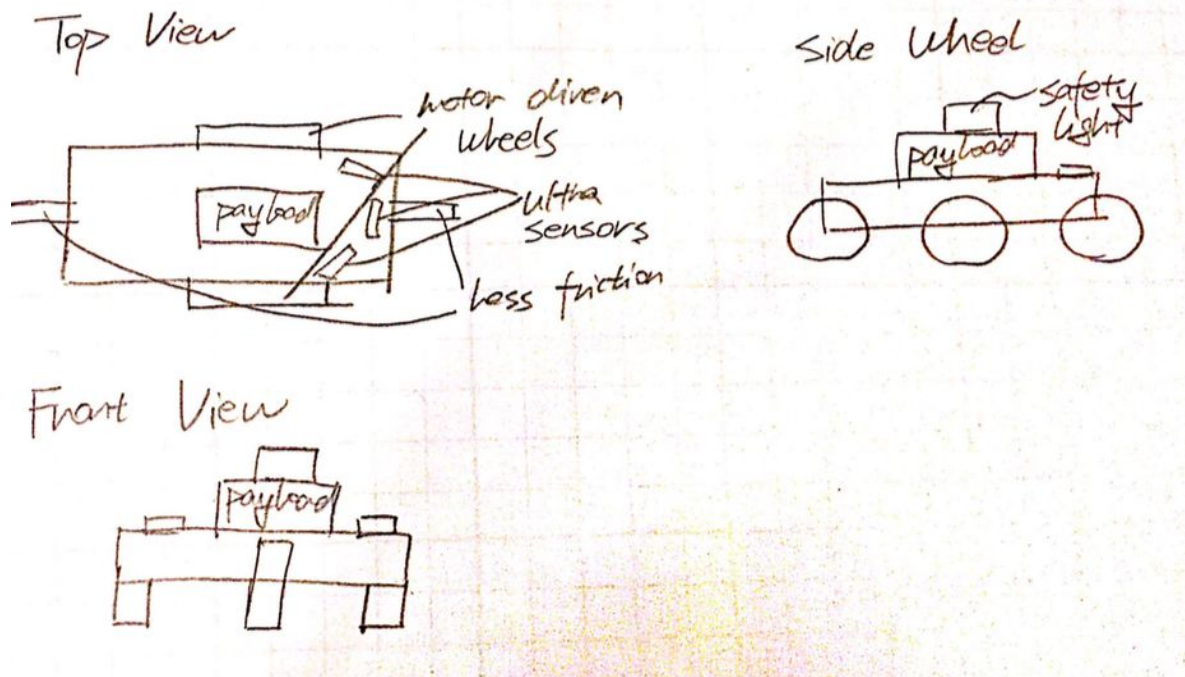 Top View
motor driven
wheels
payload
ultra
sensors
Less friction
Side Wheel
safety
light
payload
Front View
payload